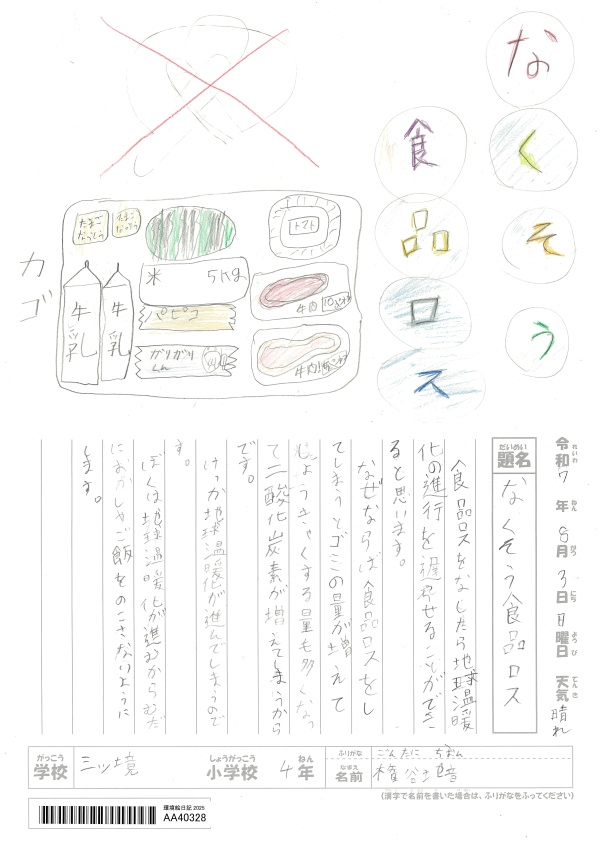 なくそう
食品ロス
カゴ
たまご
なっとう
たまご
なっとう
トマト
米 5kg
牛乳
牛乳
パピコ
がりがり
くん
牛肉
牛肉
令和7年8月3日日曜日 天気 晴れ
れいわ ねん がつ にち ようび てんき
だいめい
題名
なくそう食品ロス
食品ロスをなしたら地球温暖
化の進行を遅らせることができ
ると思います。
なぜならば食品ロスをし
てしまうとゴミの量が増えて
しょうきゃくする量も多くなっ
て二酸化炭素が増えてしまうから
です。
けっか地球温暖化が進んでしまうので
す。
ぼくは地球温暖化が進むからむだ
におかしやご飯をのこさないように
します。
がっこう
学校
三ツ境
しょうがっこう
小学校
4
ねん
年
ふりがな
ごんたに ちおん
なまえ
名前
権谷地音
(漢字で名前を書いた場合は、ふりがなをふってください)
環境絵日記 2025
AA40328